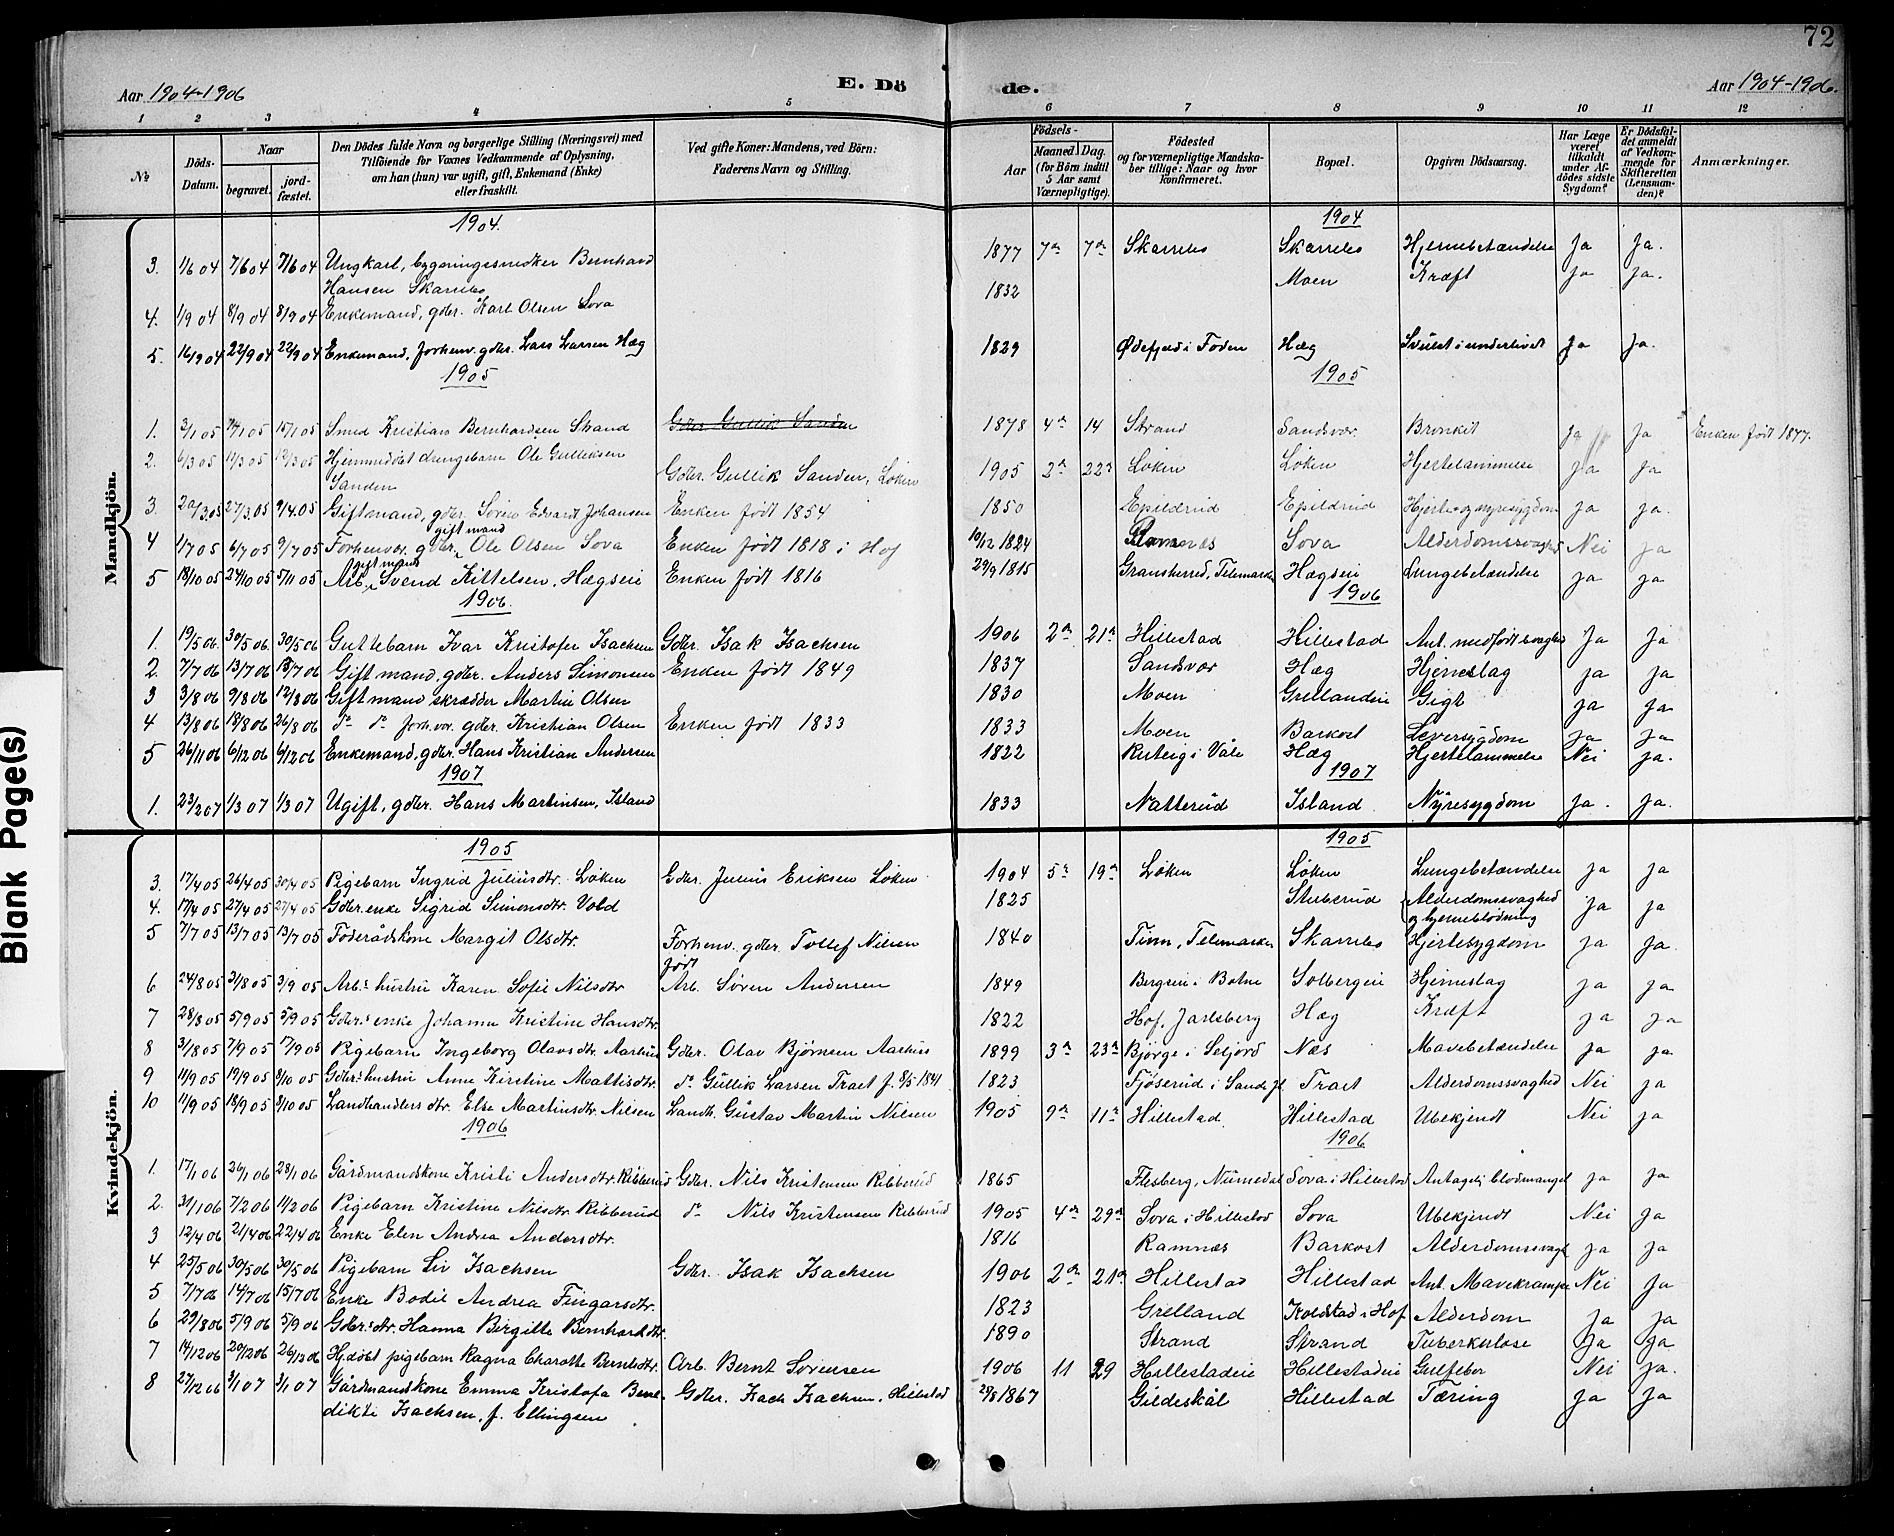 72
Aar 1904-1906
E. Dö
de.
Aar 1904-1906.
1 2 3 4 5 6 7 8 9 10 11 12
No.
Döds-Datum.
Naar
begravet.
jord-fæstet.
Den Dödes fulde Navn og borgerlige Stilling (Næringsvei) med
Tilföiende for Voxnes Vedkommende af Oplysning,
om han (hun) var ugift, gift, Enkemand (Enke)
eller fraskilt.
Ved gifte Koner: Mandens, ved Börn:
Faderens Navn og Stilling.
Födsels-
Aar
Maaned Dag.
(for Börn indtil
5 Aar samt
Værnepligtige).
Födested
og for værnepligtige Mandska-
ber tillige: Naar og hvor
konfirmeret.
Bopæl.
Opgiven Dödsaarsag.
Har Læge
været
tilkaldt
under Af-
dödes sidste
Sygdom?
Er Dödsfal-
det anmeldt
af Vedkom-
mende for
Skifteretten
(Lensman-
den)?
Anmærkninger.
Mandkjön.
1904. 1904
3. 1/6 04 7/6 04 7/6 04 Ungkarl, bygningssnedker Bernhard 1877 7de 7de Skarrebo Skarrebo Hjernebetændelse Ja Ja.
Hansen Skarrebo
4. 1/9 04 8/9 04 8/9 04 Enkemand, gdbr. Karl Olsen Sova 1832 Moen Kræft Ja Ja.
5. 16/9 04 22/9 04 22/9 04 Enkemand, forhenv. gdbr. Lars Larsen Hæg 1829 Ødefjeld i Foden Hæg Svulst i underlivet Ja Ja.
1905 1905
1. 3/1 05 14/1 05 15/1 05 Smed Kristian Bernhardsen Strand Gdbr. Gullik Sanden 1878 4de 14 Strand Sandsvær Bronkit Ja Ja Enken født 1877.
2. 6/3 05 12/3 05 12/3 05 Hjemmedøbt drengebarn Ole Gulliksen
Sanden Gdbr. Gullik Sanden, Løken 1905 2den 22de Løken Løken Hjertelammelse Ja Ja
3. 20/3 05 27/3 05 9/4 05 Giftmand, gdbr. Søren Edvardt Johansen Enken født 1854 1850 Epildrud Epildrud Hjerte og nyresygdom Ja Ja.
4 1/7 05 6/7 05 9/7 05 Forhenvær. gdbr. giftmand Ole Olsen Sova Enken født 1818 i Hof 10/12 1824 Ramnæs Sova Alderdomssvaghed Nei Ja
5 18/10 05 24/10 05 5/11 05 Arb. giftmand Svend Kittelsen, Hægseie Enken født 1816 29/9 1815 Gransherred, Telemarken Hægseie Lungebetændelse Ja Ja
1906. 1906
1. 19/5 06. 30/5 06. 30/5 06 Guttebarn Ivar Kristofer Isachsen Gdbr. Isak Isachsen 1906 2den 21de Hillestad Hillestad Ant. medfødt svaghed Ja Ja
2. 7/7 06 13/7 06 13/7 06 Giftmand, gdbr. Anders Simonsen Enken født 1849 1837 Sandsvær Hæg Hjerneslag Ja Ja
3 3/8 06 9/8 06 12/8 06 Giftmand skrædder Martin Olsen 1830 Moen Grellandeie Gigt Ja Ja
4 13/8 06 18/8 06 26/8 06 do do forh.vær. gdbr. Kristian Olsen Enken født 1833 1833 Moen Barkost Leversygdom Ja Ja
5 26/11 06 6/12 06 6/12 06 Enkemand, gdbr. Hans Kristian Andersen 1822 i Våle Hæg Hjertelammelse Nei Ja.
1907 1907
1. 23/2 07 1/3 07 1/3 07 Ugift, gdbr. Hans Martinsen, Island 1833 Natterud Island Nyresygdom Ja. Ja.
Kvindekjön.
1905 1905
3. 17/4 05 26/4 05 30/4 05 Pigebarn Ingrid Juliusdtr. Løken Gdbr. Julius Eriksen Løken 1904 5te 19de Løken Løken Lungebetændelse Ja Ja
4. 17/4 05 27/4 05 27/4 05 Gdbr. enke Sigrid Simonsdtr. Vold 1825 Stuberud Alderdomssvaghed
og hjerneblødning Ja Ja
5 7/7 05 13/7 05 13/7 05 Føderådskone Margit Olsdtr. Forhenv. gdbr. Tollef Nilsen
født 1840 Tinn, Telemarken Skarrebo Hjertesygdom Ja Ja
6 24/8 05 31/8 05 3/9 05 Arb.s hustru Karen Sofie Nilsdtr Arb. Søren Andersen 1849 Bergseie i Botne Solbergeie Hjerneslag Ja Ja
7 28/8 05 5/9 05 5/9 05 Gdbr.s enke Johanne Kristine Hansdtr. 1822 Hof, Jarlsberg Hæg Kræft Ja Ja
8 31/8 05 7/9 05 17/9 05 Pigebarn Ingeborg Olavsdtr. Aarhus Gdbr. Olav Bjørnsen Aarhus 1899 3de 23de Bjørge i Seljord Næs Mavebetændelse Ja Ja.
9 11/9 05 19/9 05 8/10 05 Gdbr.s hustru Anne Kirstine Mattisdtr. do Gullik Larsen Traet f. 8/5 1841 1823 Fjøserud i Sande Traet Alderdomssvaghed Nei Ja
10 11/9 05 18/9 05 8/10 05 Landhandlers dtr. Else Martinsdtr. Nielsen Landh. Gustav Martin Nielsen 1905 9de 11te Hillestad Hillestad Ubekjendt Nei Ja
1906 1906
1. 17/1 06 26/1 06 28/1 06 Gårdmandskone Kristi Andersdtr. Ribberud Gdbr. Nils Kristensen Ribberud 1865 Flesberg, Numedal Sova i Hillestad Antagelig blodmangel Ja Ja
2. 31/1 06 7/2 06 11/2 06 Pigebarn Kristine Nilsdtr. Ribberud do Nils Kristensen Ribberud 1905 4de 29de Sova i Hillestad Sova Ubekjendt Nei Ja
3 12/4 06 21/4 06 22/4 06 Enke Elen Andrea Andersdtr. 1816 Ramnæs Barkost Alderdomssvagh Ja Ja
4 25/5 06 30/5 06 30/5 06 Pigebarn Liv Isachsen Gdbr. Isak Isachsen 1906 2den 21de Hillestad Hillestad Ant. Mavekrampe Nei Ja
5 7/7 06 14/7 06 15/7 06 Enke Bodil Andrea Fingarsdtr. 1823 Grelland Koldstad i Hof Alderdom Ja Ja
6 29/8 06 5/9 06 5/9 06 Gdbr.s dtr. Hanna Birgitte Bernhardtdtr 1890 Strand Strand Tuberkulose Ja Ja
7 14/12 06 20/12 06 26/12 06 Hj.døbt pigebarn Ragna Charlotte Berntsdtr. Arb. Bernt Sørensen 1906 11 29 Hillestadeie Hillestadeie Gulfeber Nei Ja.
8 27/12 06 3/1 07 3/1 07 Gårdmandskone Emma Kristofa Bene-
dikte Isachsen, f. Ellingsen Gdbr. Isach Isachsen, Hillestad 29/8 1867 Gildeskål Hillestad Tæring Ja Ja
Blank Page(s)